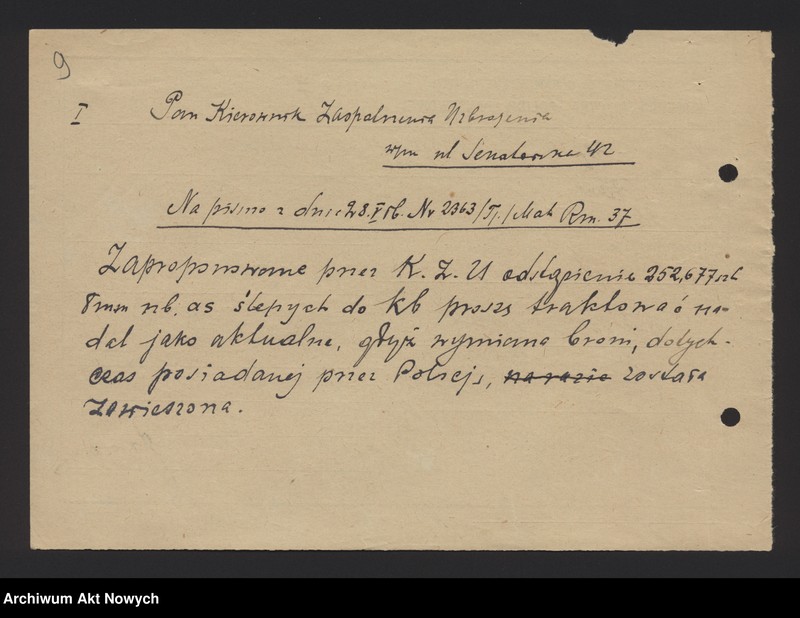 9
I Pan Kierownik Zaopatrzenia Uzbrojenia
wm ul Senatorska 42
Na pismo z dnia 28.V rb. Nr 2363/Tj./Mat Rm. 37
Zaproponowane przez K. Z. U odstąpienie 252,677 szt
8mm nb. as ślepych do kb proszę traktować na-
dal jako aktualne, gdyż wymiana broni, dotych-
czas posiadanej przez Policję, na razie została
zawieszona.
Archiwum Akt Nowych